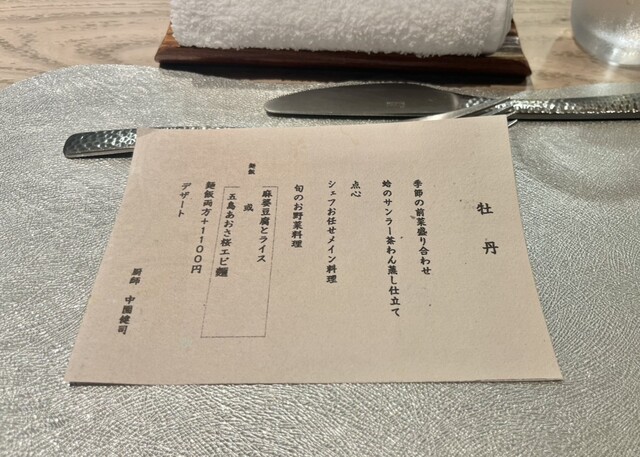 牡丹
季節の前菜盛り合わせ
蛤のサンラー茶わん蒸し仕立て
点心
シェフお任せメイン料理
旬のお野菜料理
麺飯
麻婆豆腐とライス
或
五島あおさ桜エビ麺
麺飯両方+1100円
デザート
厨師 中園健司